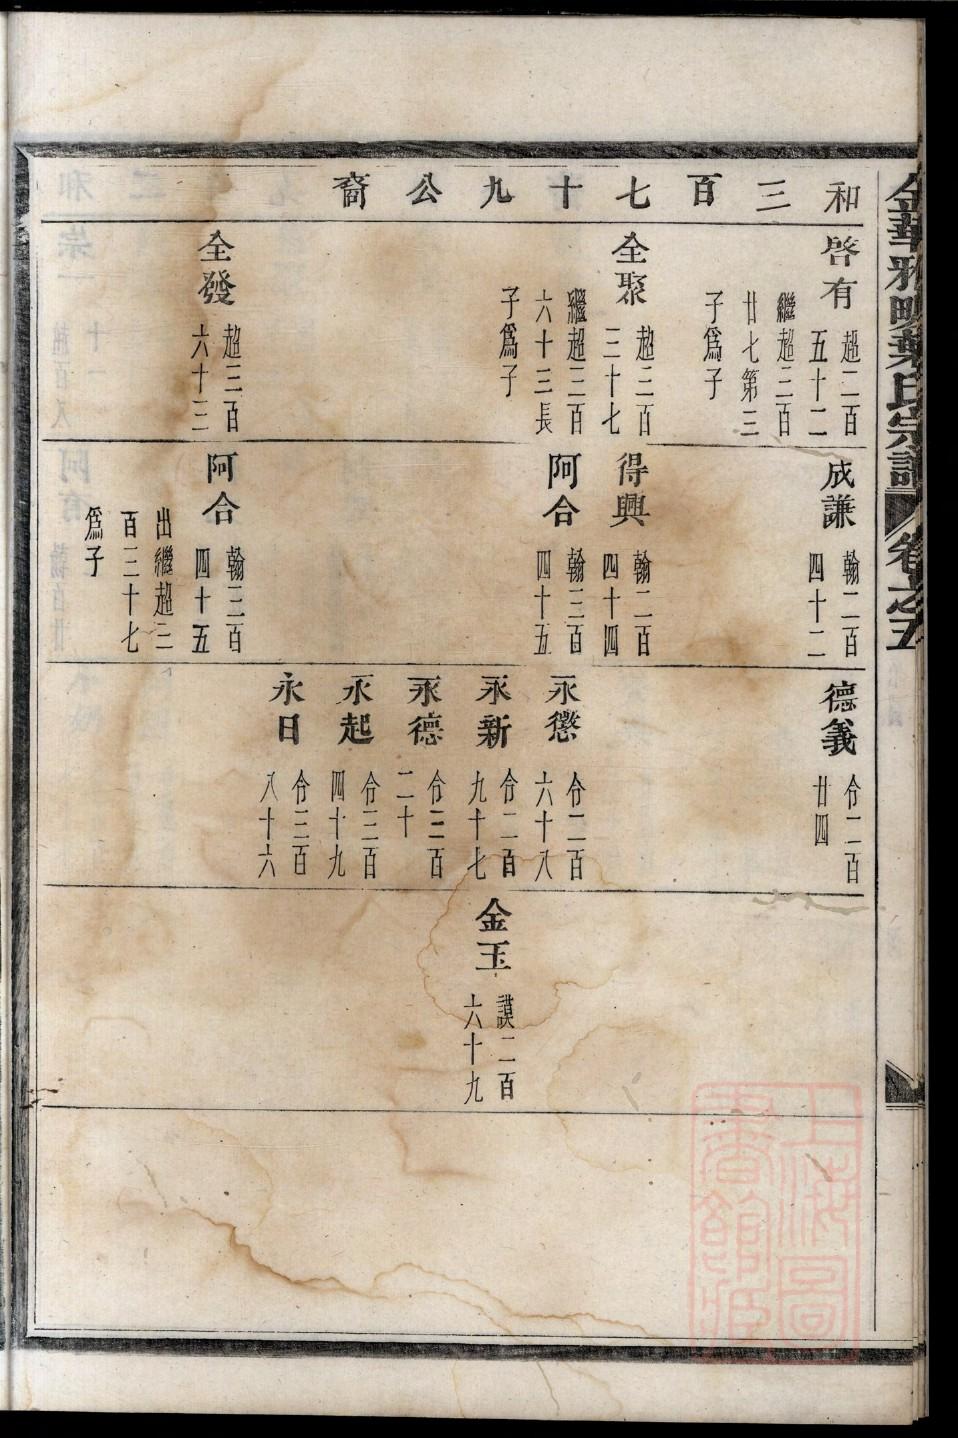 金華雅畈葉氏宗譜 卷之五
和三百七十九公裔
啓有 超二百五十二
繼超三百廿七第三子爲子
全聚 超三百三十七
繼超三百六十三長子爲子
全發 超三百六十三
成謙 翰二百四十二
得興 翰二百四十四
阿合 翰三百四十五
阿合 翰三百四十五
出繼超三百三十七爲子
德義 令二百廿四
永懲 令二百六十八
永新 令二百九十七
永德 令三百二十
永起 令三百四十九
永日 令三百八十六
金玉 謨二百六十九
上海圖書館藏